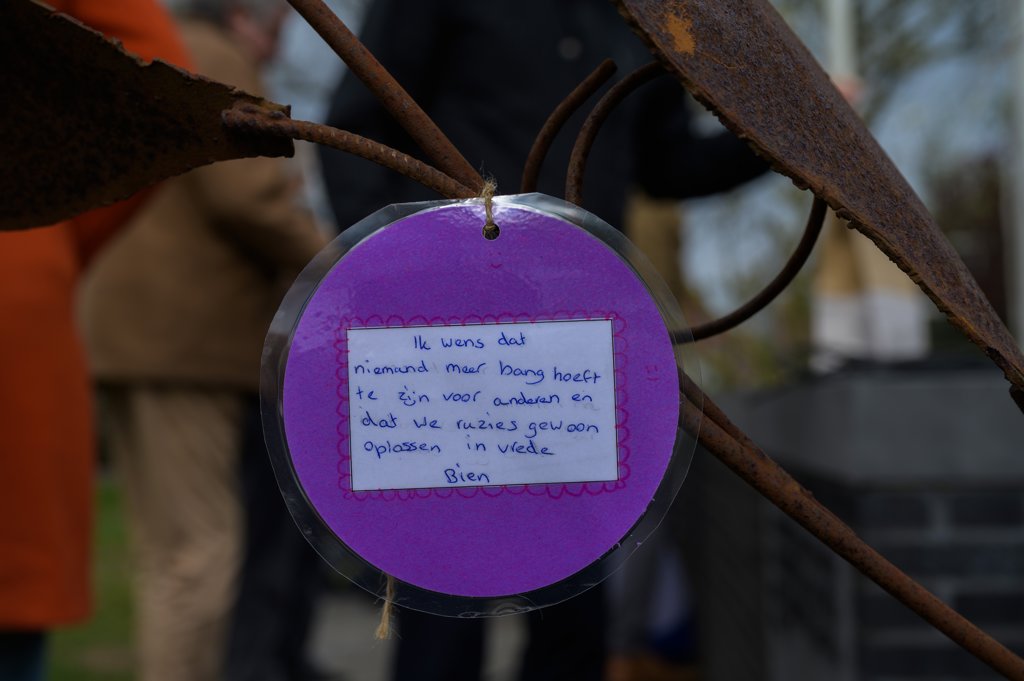 Ik wens dat
niemand meer bang hoeft
te zijn voor anderen en
dat we ruzies gewoon
oplassen in vrede
Bien